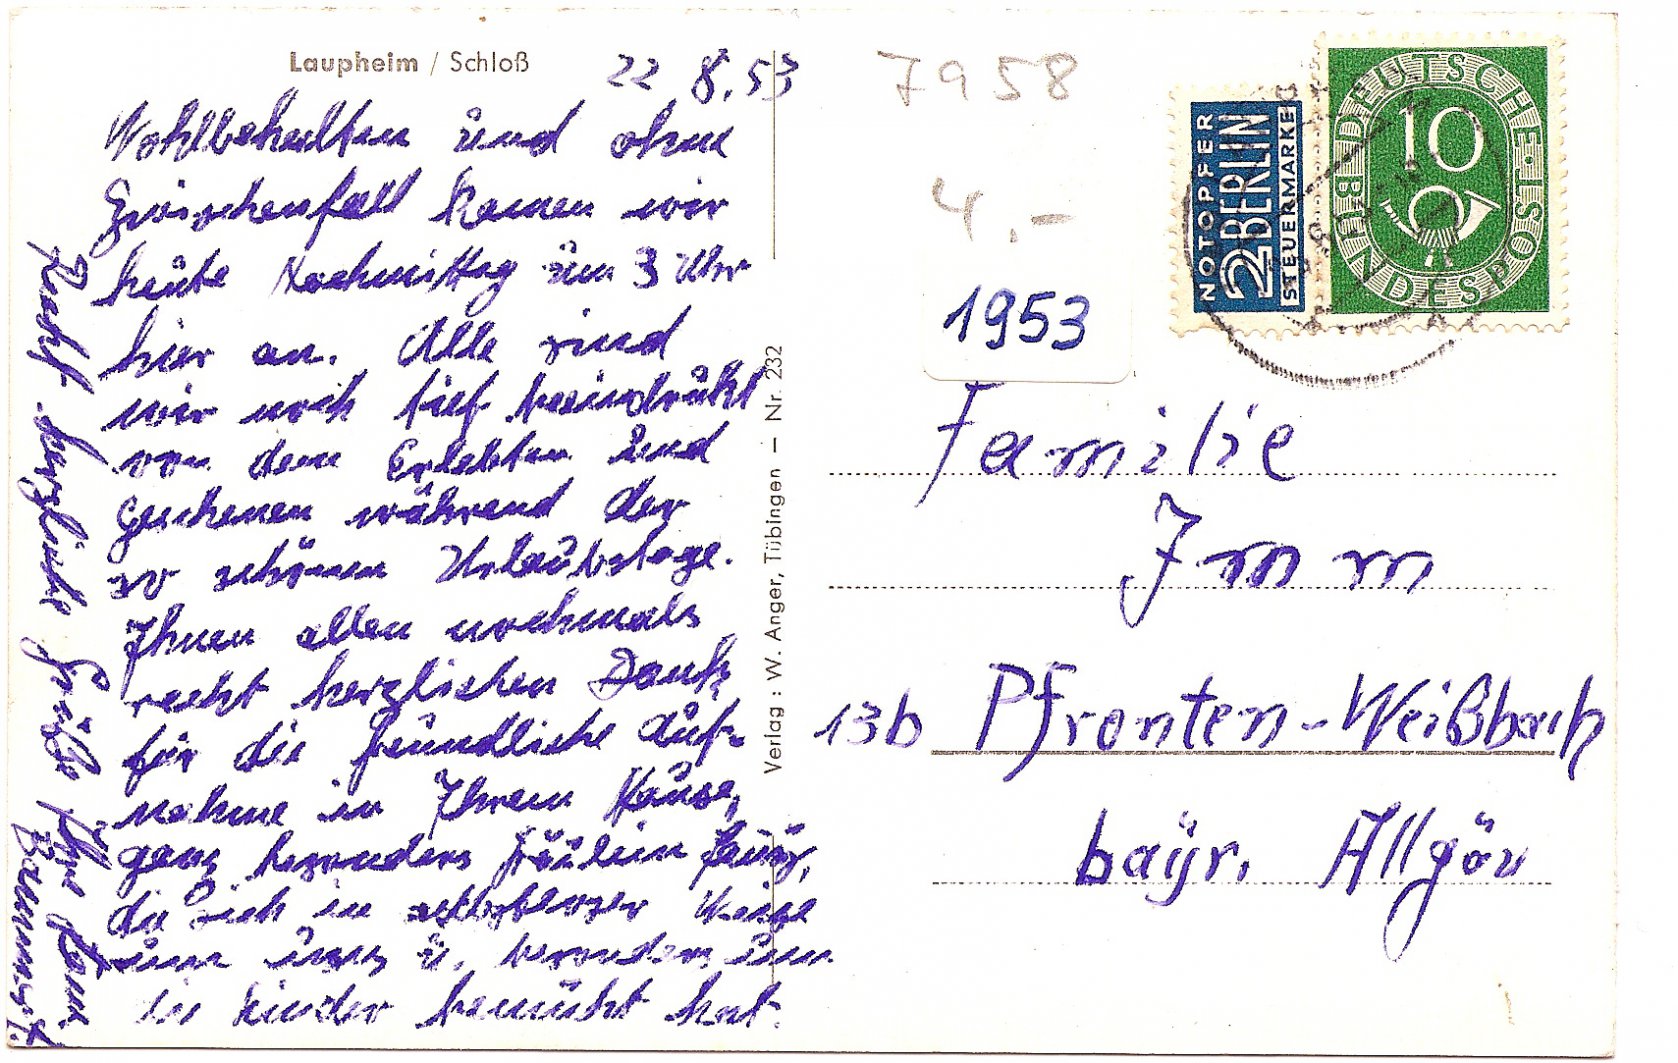 Laupheim / Schloß
22 8. 53
Wohlbehalten und ohne
Zwischenfall kamen wir
heute Nachmittag um 3 Uhr
hier an. Alle sind
wir noch tief beeindrukt
von dem Erlebten und
Gesehenen während der
so schönen Urlaubstage.
Ihnen allen nochmals
recht herzlichen Dank
für die freundliche Auf-
nahme in Ihrem Hause,
ganz besonders Fräulein
die sich in selbstloser Weise
um uns u. besonders um
die Kinder bemüht hat.
Recht herzliche Grüße Ihre Fam.
Verlag: W. Anger, Tübingen — Nr. 232
7958
4.-
1953
NOTOPFER
2 BERLIN
STEUERMARKE
DEUTSCHE BUNDESPOST
10
Familie
Imm
13b Pfronten-Weißbach
bayr. Allgäu